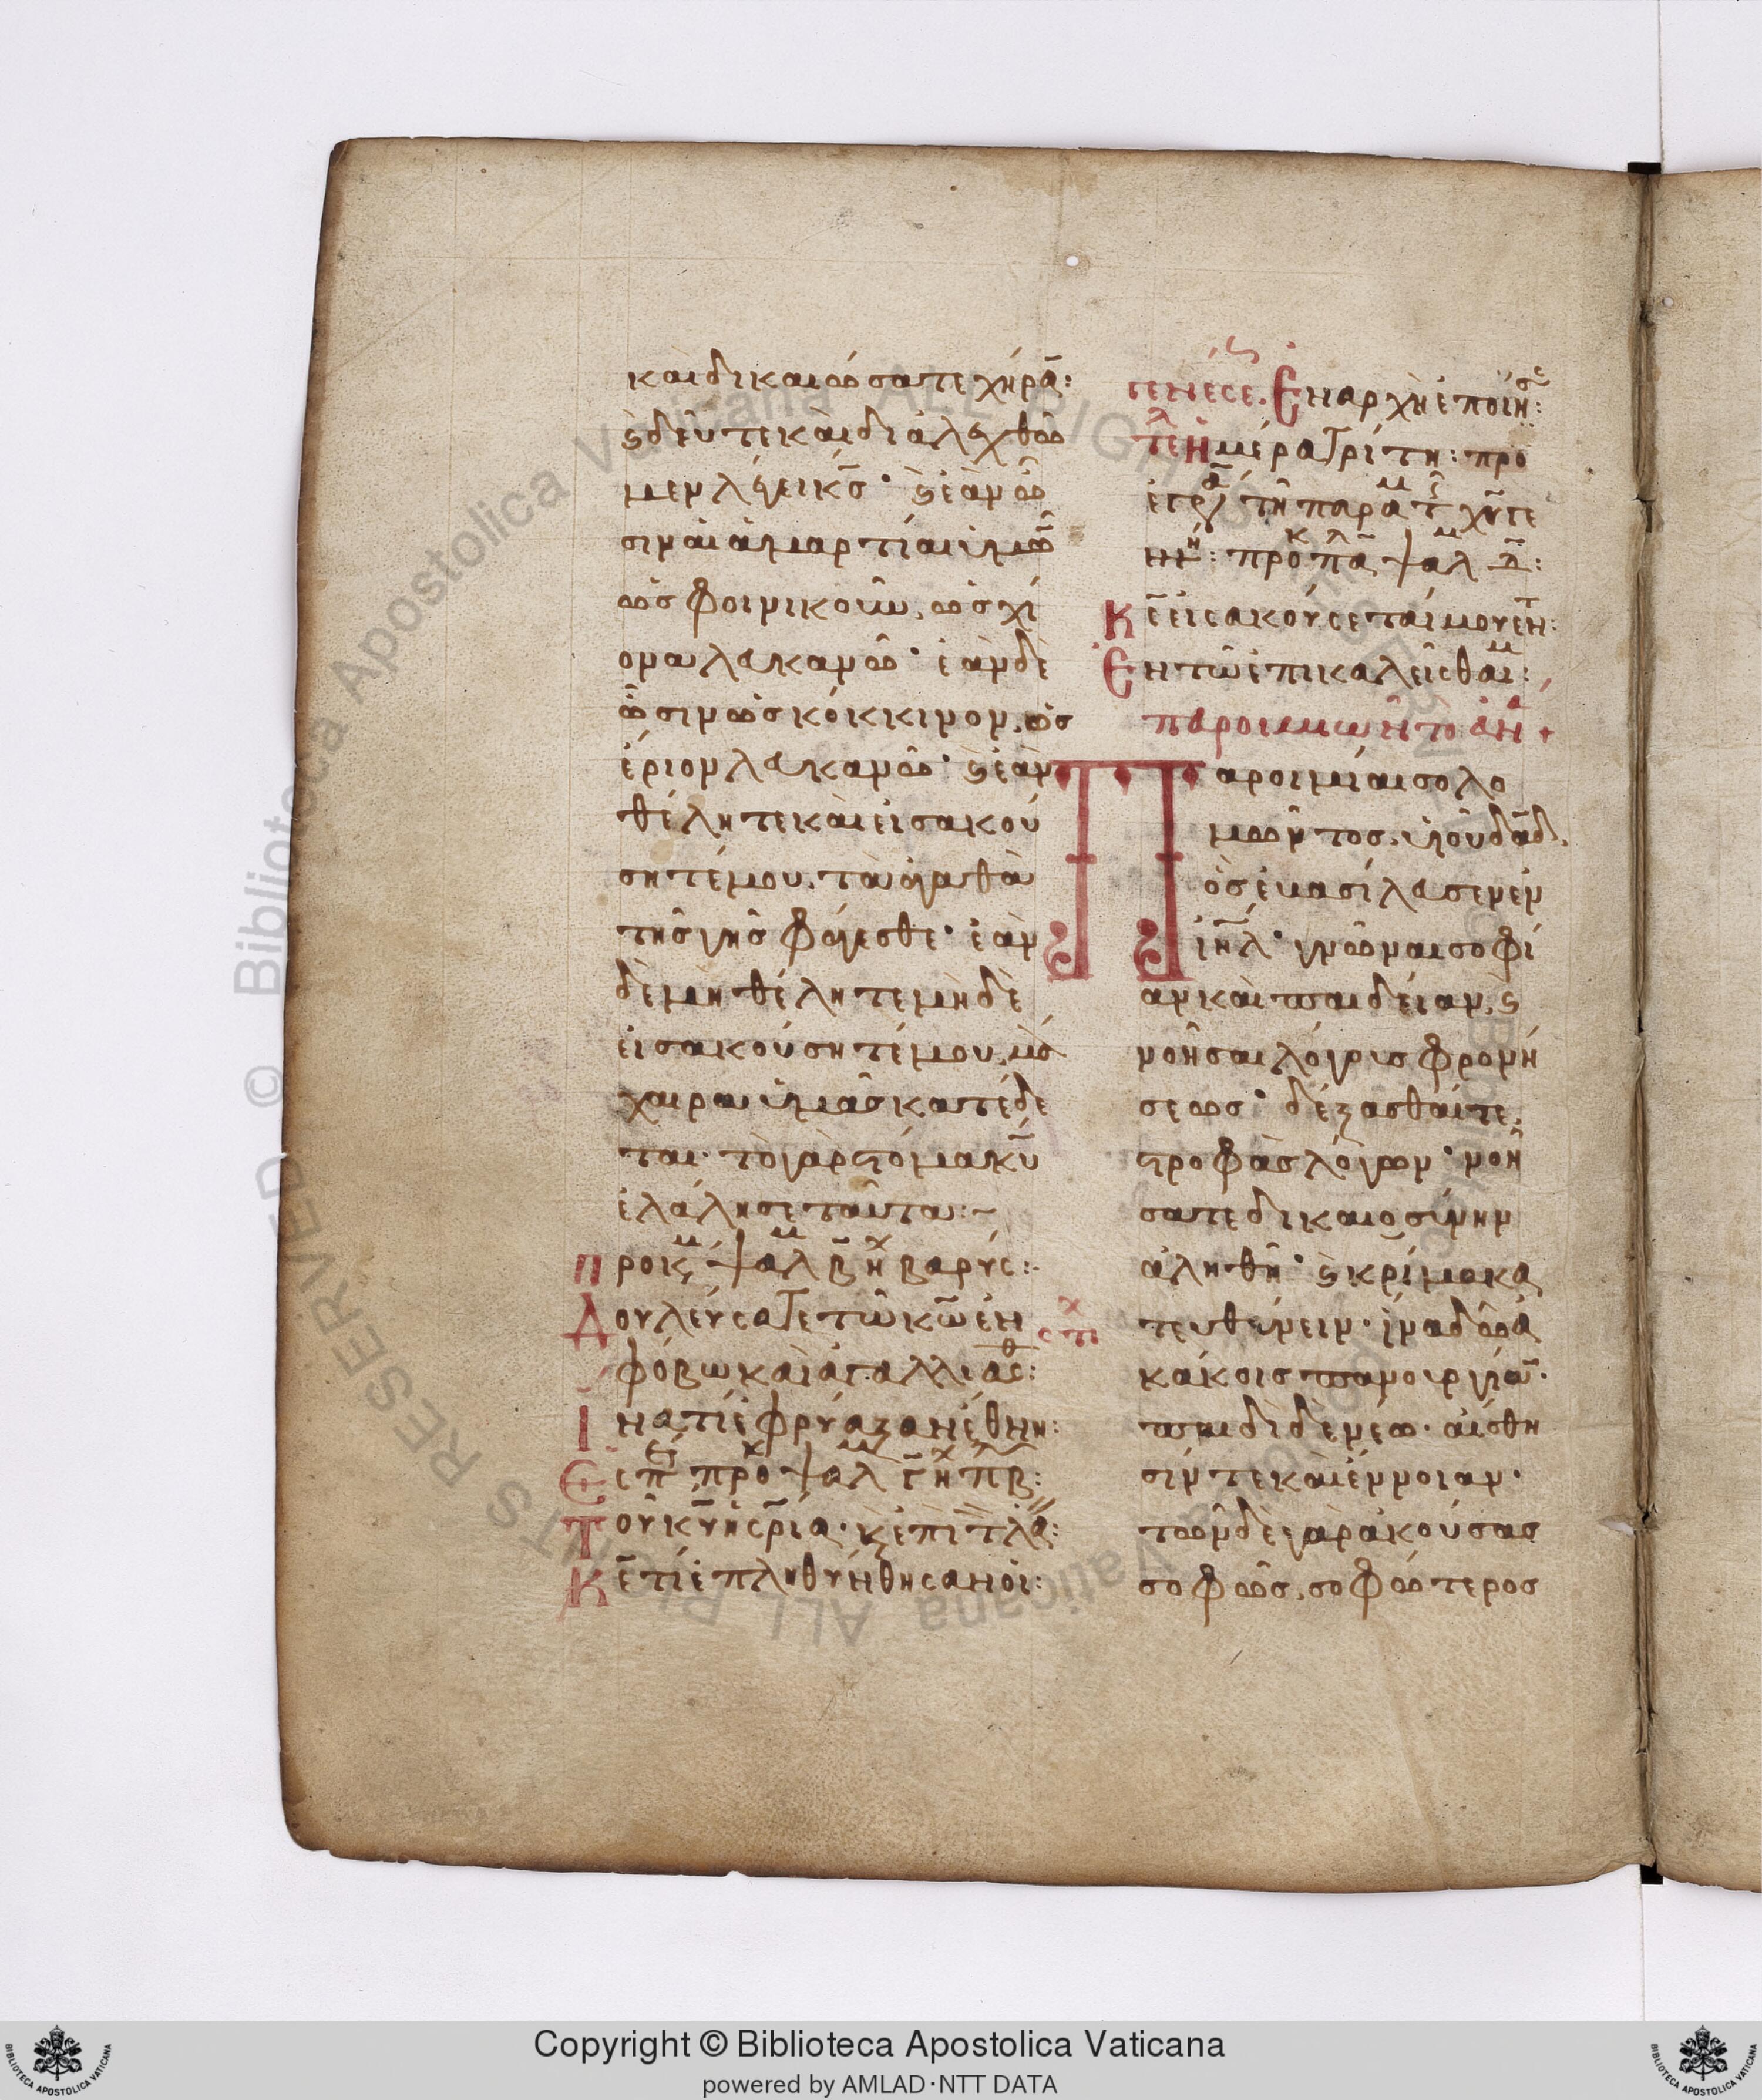 καὶ δικαιώσατε χήρα̅:
ϛ δεῦτε καὶ διαλεχθῶ
μεν λέγει κ̅ς̅· ϛ ἐὰν ὦ
σιν αἱ ἁμαρτίαι ὑμῶ̅
ὡς φοινικοῦν, ὡς χι
όνα λευκανῶ· ἐὰν δὲ
ὦσιν ὡς κόκκινον, ὡς
ἔριον λευκανῶ· ϛ ἐὰν
θέλητε καὶ εἰσακού
σητέ μου, τὰ ἀγαθὰ
τῆς γῆς φάγεσθε· ἐὰν
δὲ μὴ θέλητε μηδὲ
εἰσακούσητέ μου, μά
χαιρα ὑμᾶς κατέδε
ται· τὸ γὰρ στόμα κ̅υ̅
ἐλάλησε ταῦτα:~
Προκ ψαλ β̅ ἠχ βαρύς:
Δουλεύσατε τῶ κ̅ω̅ ἐν
φόβω καὶ ἀγαλλιᾶσθ:
Ἱνατί ἐφρύαξαν ἔθνη:
Ἑσπ προκ ψαλ γ̅ ἠχ πλ β:
Τοῦ κ̅υ̅ ἡ σ̅ρ̅ία· κ ἐπὶ τ λα:
Κ̅ε̅ τί ἐπληθύνθησαν οἱ:
Γενέσε. Ἐν ἀρχῆ ἐποίησε:
Τέλ Ἡμέρα τρίτη: προ
εγρά τῆ παρα τ χυ τε
προκ πλ α ψαλμ δ̅:
Κ̅ε̅ εἰσακούσεταί μου ἐν τ:
Ἐν τῶ ἐπικαλεῖσθαί μ:
Παροιμιων το αν
Παροιμίαι σολο
μῶντος, υἱοῦ δα̅δ,
ὃς ἐβασίλευσεν ἐν
ἰη̅λ· γνῶναι σοφί
αν καὶ παιδείαν, ϛ
νοῆσαι λόγους φρονή
σεως· δέξασθαί τε
στροφὰς λόγων· νοῆ
σαί τε δικαιοσύνην
ἀληθῆ· ϛ κρίμα κα
στχ
τευθύνειν· ἵνα δῶ ἀ
κάκοις πανουργία̅·
παιδὶ δὲ νέω· αἴσθη
σίν τε καὶ ἔννοιαν·
τῶνδε γὰρ ἀκούσας
σοφῶς, σοφώτερος
Copyright © Biblioteca Apostolica Vaticana
powered by AMLAD·NTT DATA